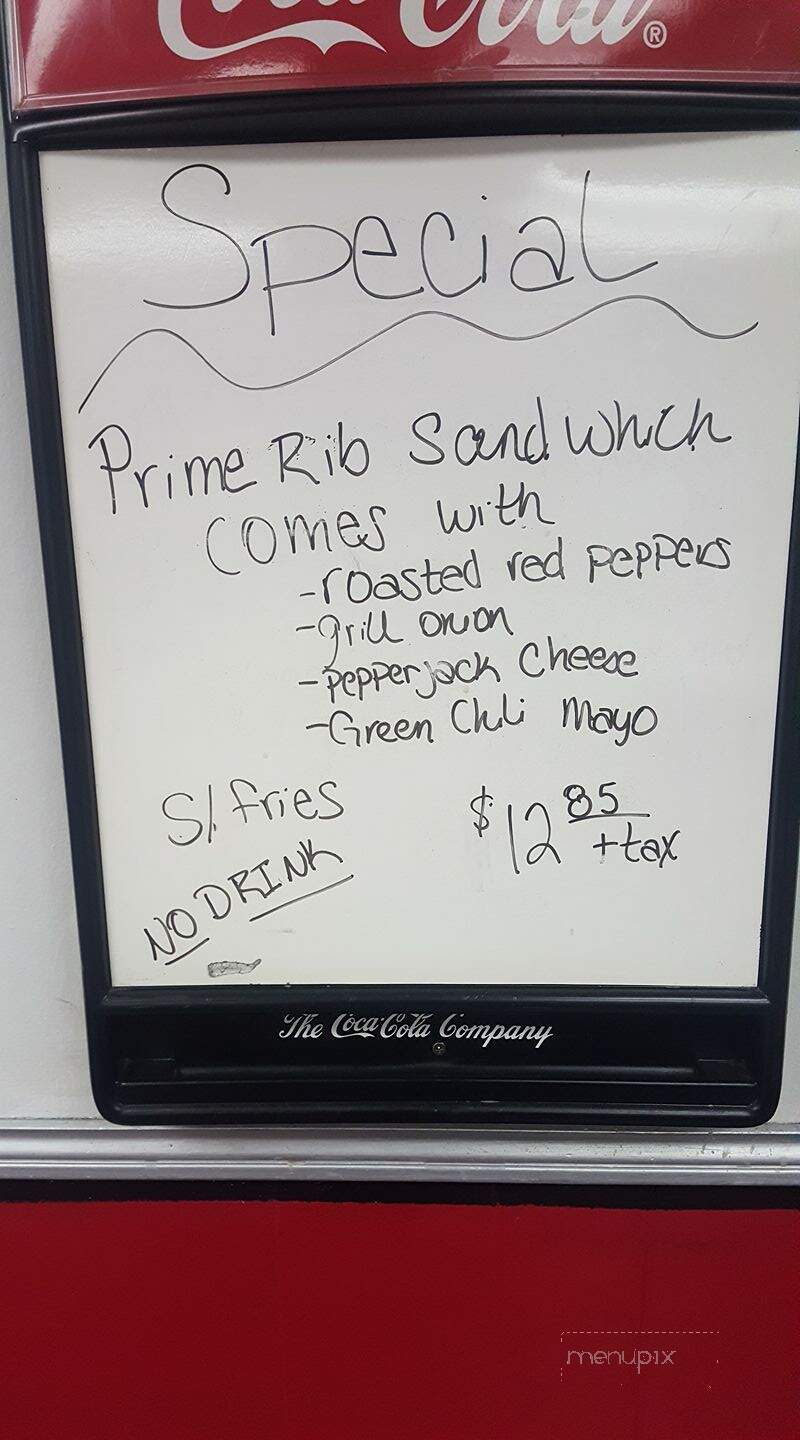 Coca-Cola®
Special
Prime Rib Sandwhich
comes with
-roasted red peppers
-grill onion
-pepperjack Cheese
-Green Chili Mayo
S/ fries
$12 85
+tax
NO DRINK
The Coca-Cola Company
menupix